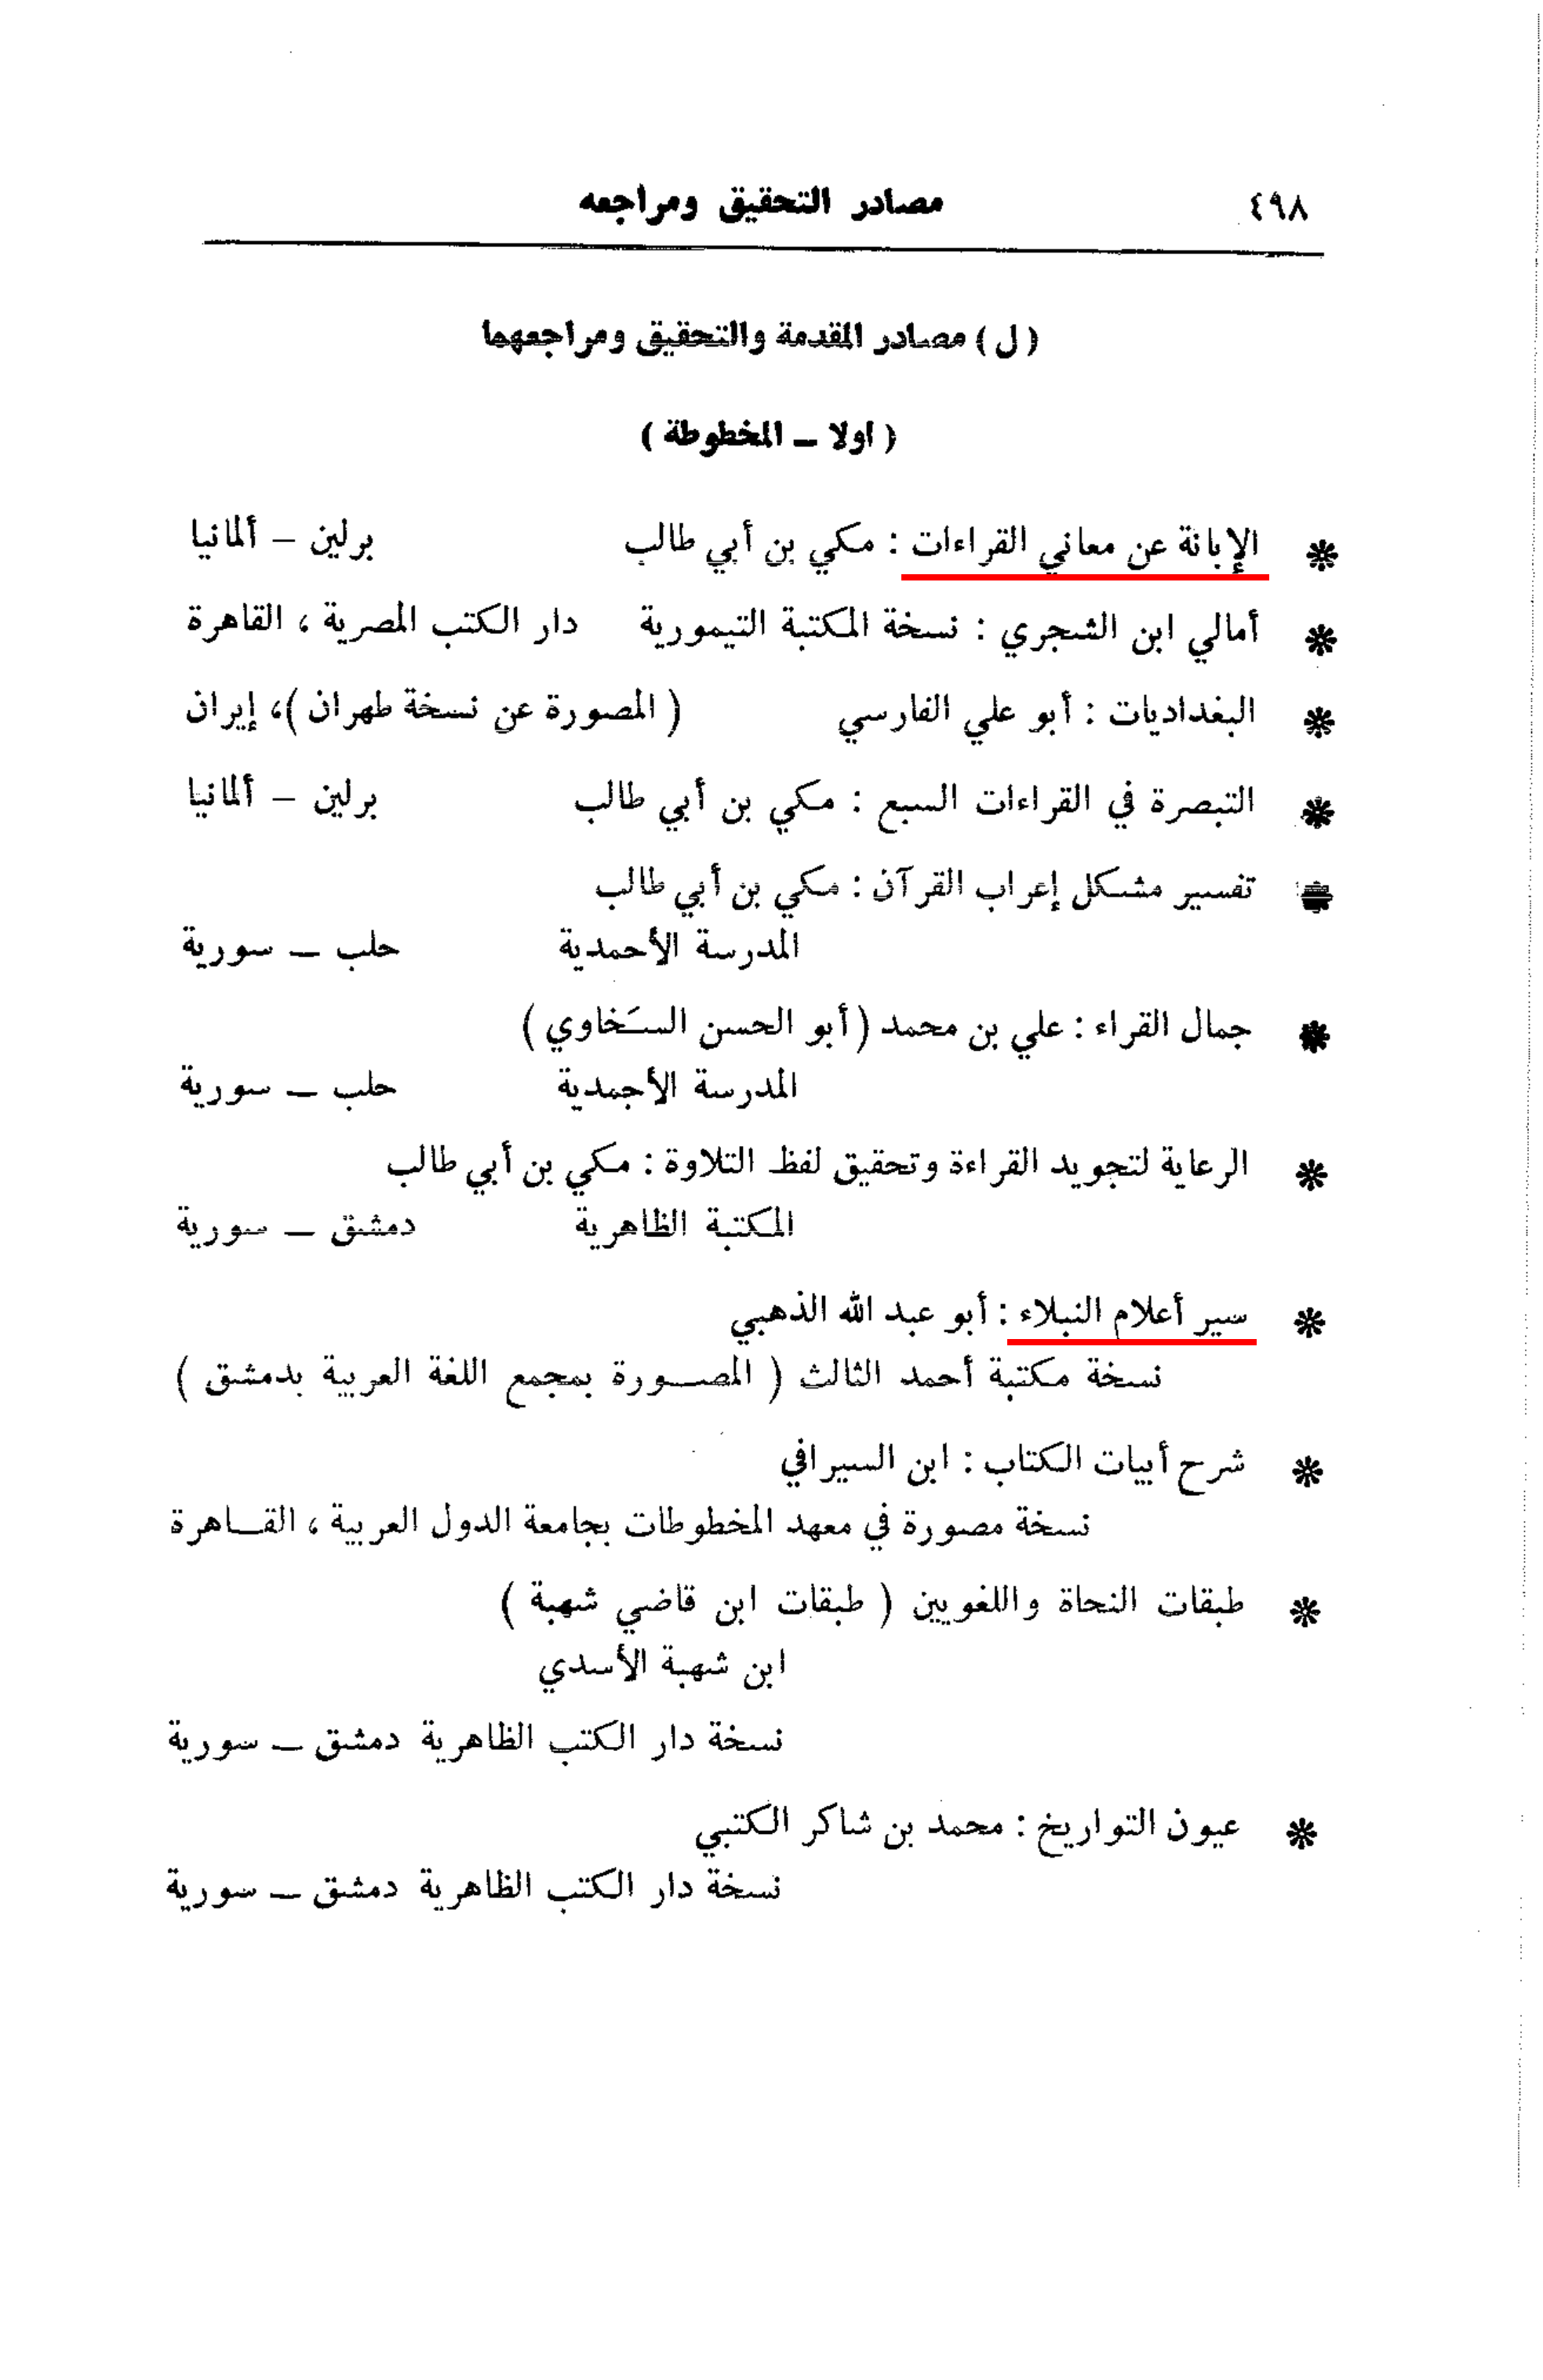 ٤٩٨ مصادر التحقيق ومراجعه
( ل ) مصادر المقدمة والتحقيق ومراجعهما
( اولا ــ المخطوطة )
* الإبانة عن معاني القراءات : مكي بن أبي طالب برلين – ألمانيا
* أمالي ابن الشجري : نسخة المكتبة التيمورية دار الكتب المصرية ، القاهرة
* البغداديات : أبو علي الفارسي ( المصورة عن نسخة طهران )، إيران
* التبصرة في القراءات السبع : مكي بن أبي طالب برلين – ألمانيا
* تفسير مشكل إعراب القرآن : مكي بن أبي طالب
المدرسة الأحمدية حلب ــ سورية
* جمال القراء : علي بن محمد ( أبو الحسن السَخاوي )
المدرسة الأجمدية حلب ــ سورية
* الرعاية لتجويد القراءة وتحقيق لفظ التلاوة : مكي بن أبي طالب
المكتبة الظاهرية دمشق ــ سورية
* سير أعلام النبلاء : أبو عبد الله الذهبي
نسخة مكتبة أحمد الثالث ( المصـــورة بمجمع اللغة العربية بدمشق )
* شرح أبيات الكتاب : ابن السيرافي
نسخة مصورة في معهد المخطوطات بجامعة الدول العربية ، القـــاهرة
* طبقات النحاة واللغويين ( طبقات ابن قاضي شهبة )
ابن شهبة الأسدي
نسخة دار الكتب الظاهرية دمشق ــ سورية
* عيون التواريخ : محمد بن شاكر الكتبي
نسخة دار الكتب الظاهرية دمشق ــ سورية